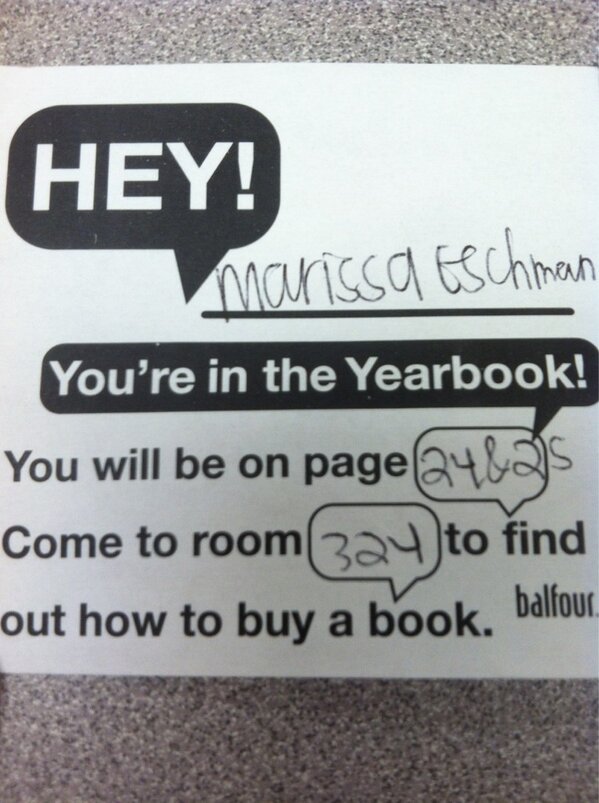 HEY!
marissa Eschman
You're in the Yearbook!
You will be on page 24&25
Come to room 324 to find
out how to buy a book.
balfour.